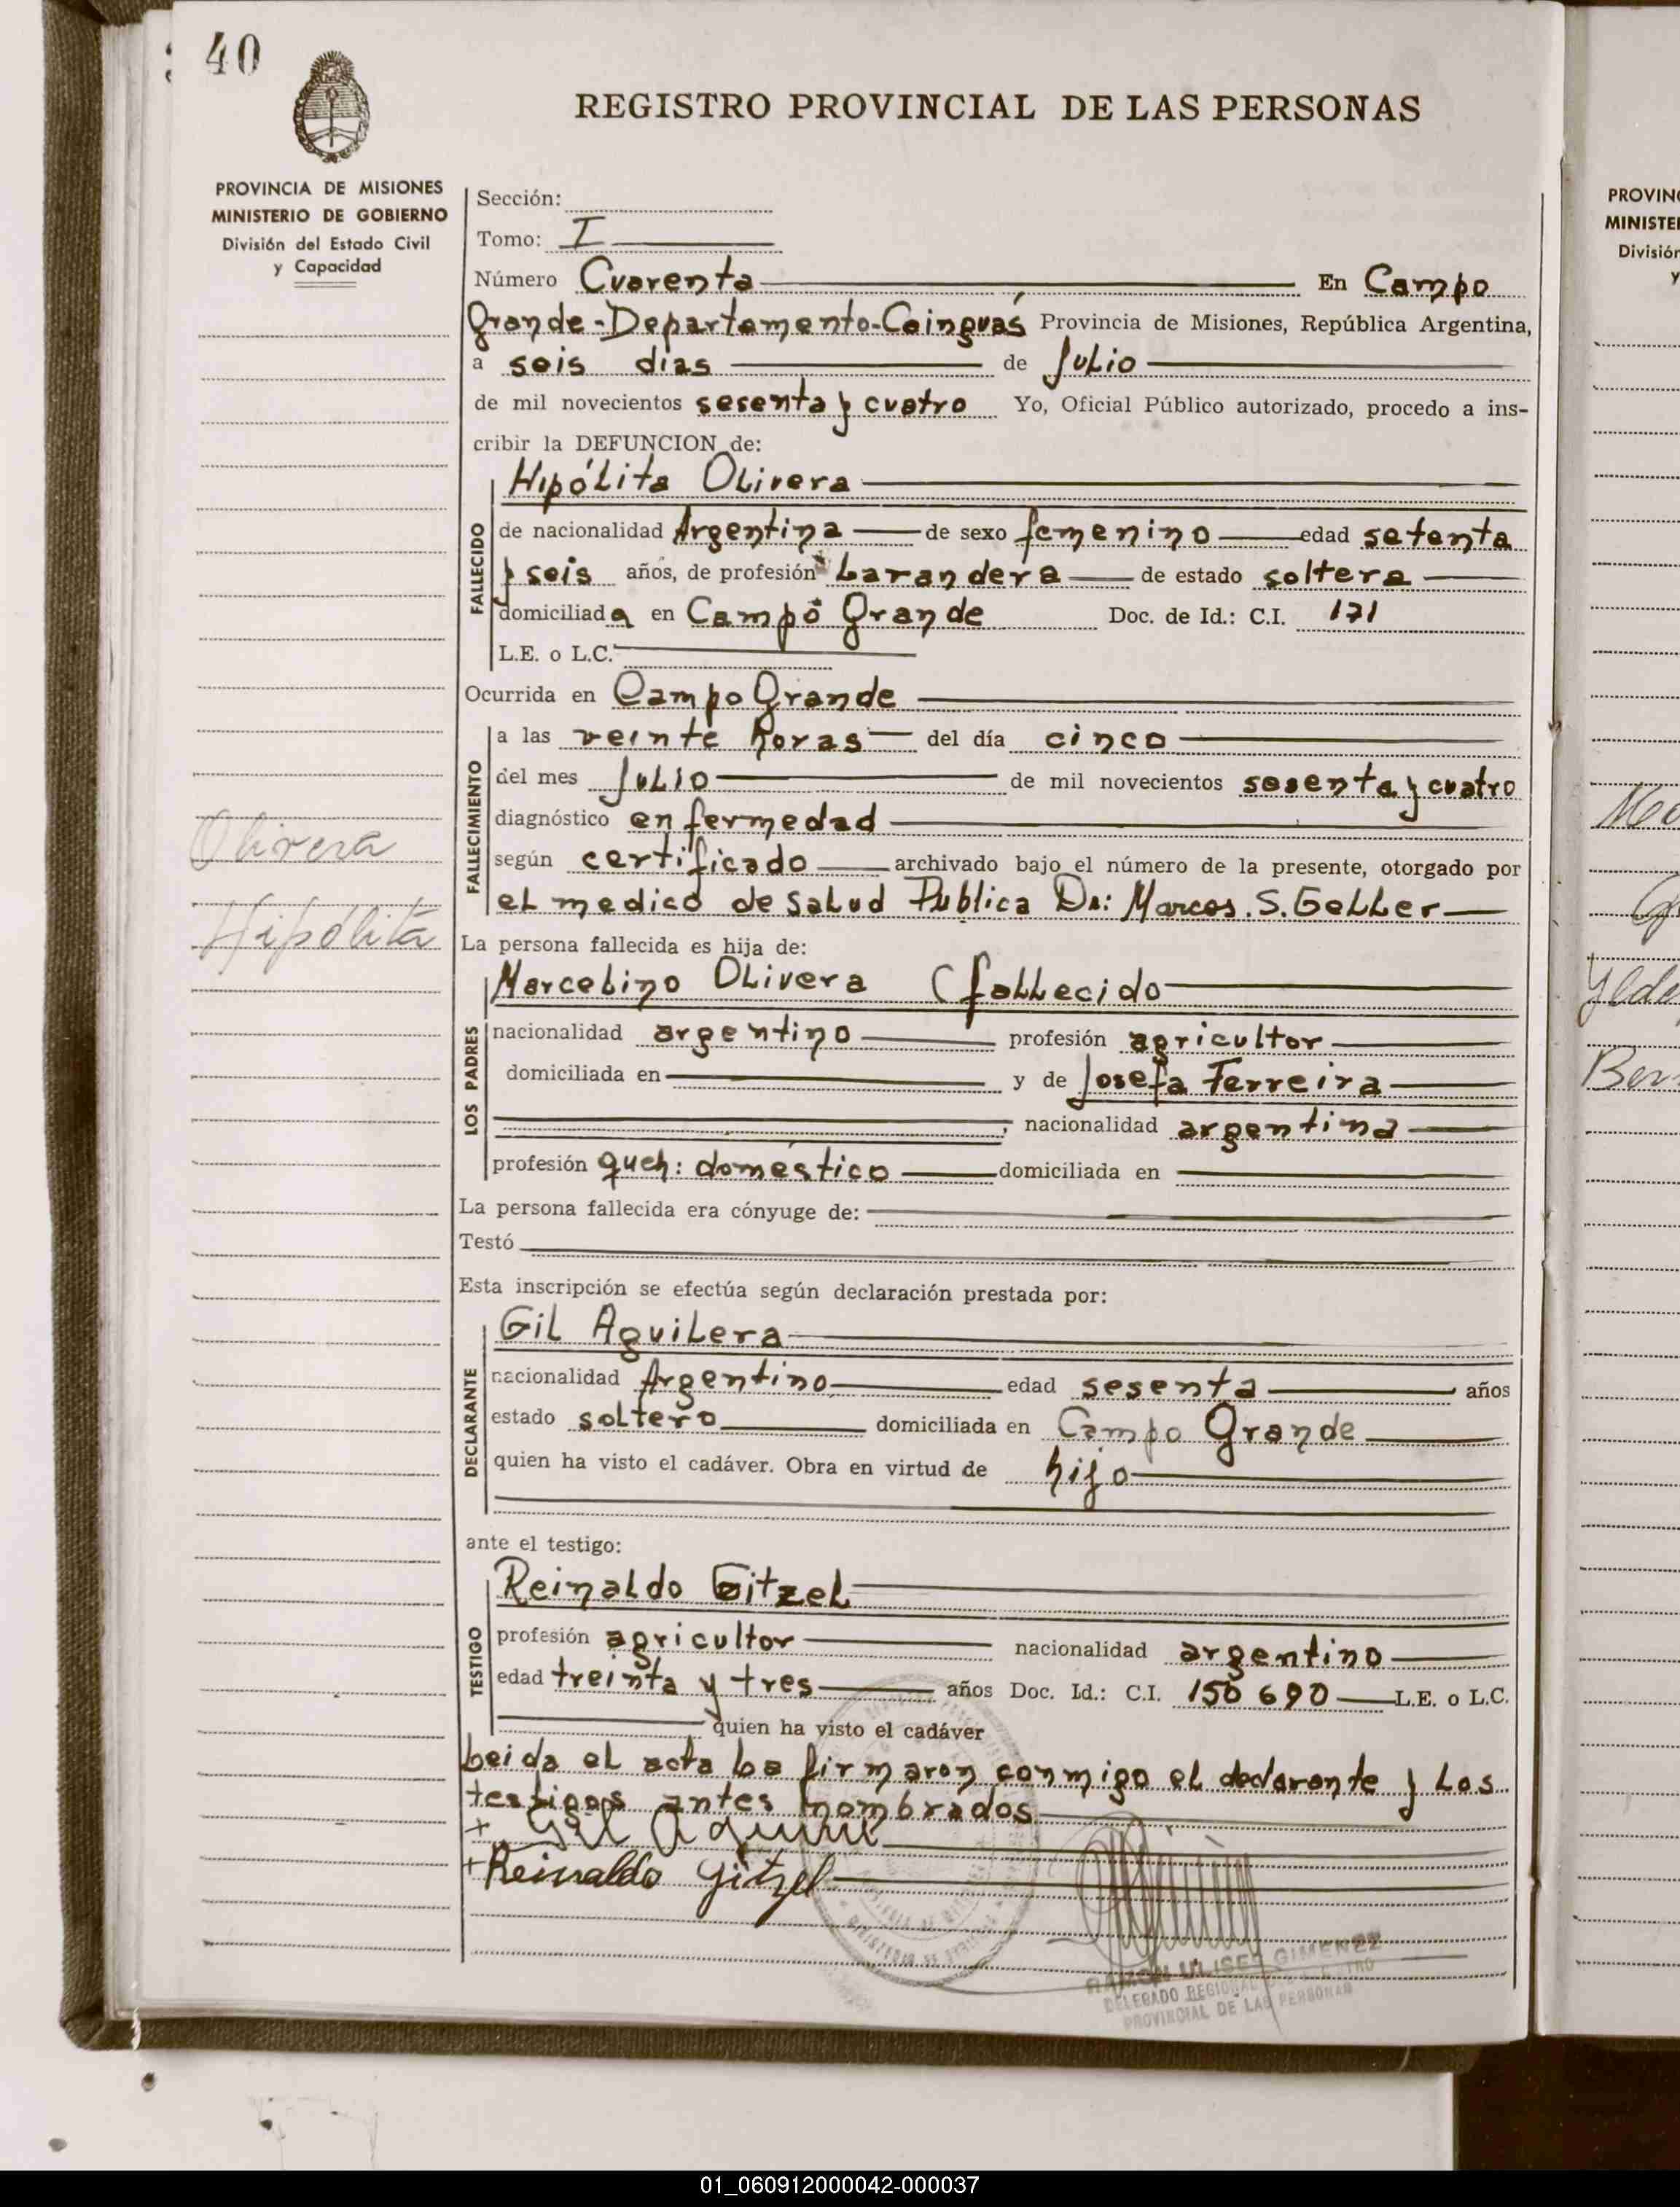 40
REGISTRO PROVINCIAL DE LAS PERSONAS
PROVINCIA DE MISIONES
MINISTERIO DE GOBIERNO
División del Estado Civil
y Capacidad
Olivera
Hipólita
Sección:
Tomo: I
Número Cuarenta En Campo
Grande - Departamento - Cainguás Provincia de Misiones, República Argentina,
a seis dias de Julio
de mil novecientos sesenta y cuatro Yo, Oficial Público autorizado, procedo a ins-
cribir la DEFUNCION de:
Hipólita Olivera
FALLECIDO
de nacionalidad Argentina de sexo femenino edad setenta
y seis años, de profesión Lavandera de estado soltera
domiciliada en Campo Grande Doc. de Id.: C.I. 171
L.E. o L.C.
Ocurrida en Campo Grande
FALLECIMIENTO
a las veinte horas del día cinco
del mes Julio de mil novecientos sesenta y cuatro
diagnóstico enfermedad
según certificado archivado bajo el número de la presente, otorgado por
el medico de Salud Publica Dr: Marcos. S. Geller
La persona fallecida es hija de:
Marcelino Olivera (fallecido
LOS PADRES
nacionalidad argentino profesión agricultor
domiciliada en y de Josefa Ferreira
; nacionalidad argentina
profesión queh: doméstico domiciliada en
La persona fallecida era cónyuge de:
Testó
Esta inscripción se efectúa según declaración prestada por:
Gil Aguilera
DECLARANTE
nacionalidad Argentino edad sesenta años
estado soltero domiciliada en Campo Grande
quien ha visto el cadáver. Obra en virtud de hijo
ante el testigo:
Reinaldo Gitzel
TESTIGO
profesión agricultor nacionalidad argentino
edad treinta y tres años Doc. Id.: C.I. 150 690 L.E. o L.C.
quien ha visto el cadáver
Leida el acta la firmaron conmigo el declarante y los
testigos antes nombrados
+ Gil
+ Reinaldo Gitzel
RAMON ULISES GIMENEZ
DELEGADO REGIONAL
PROVINCIAL DE LAS PERSONAS
PROVIN
MINISTE
División
y
Ber
01_060912000042-000037